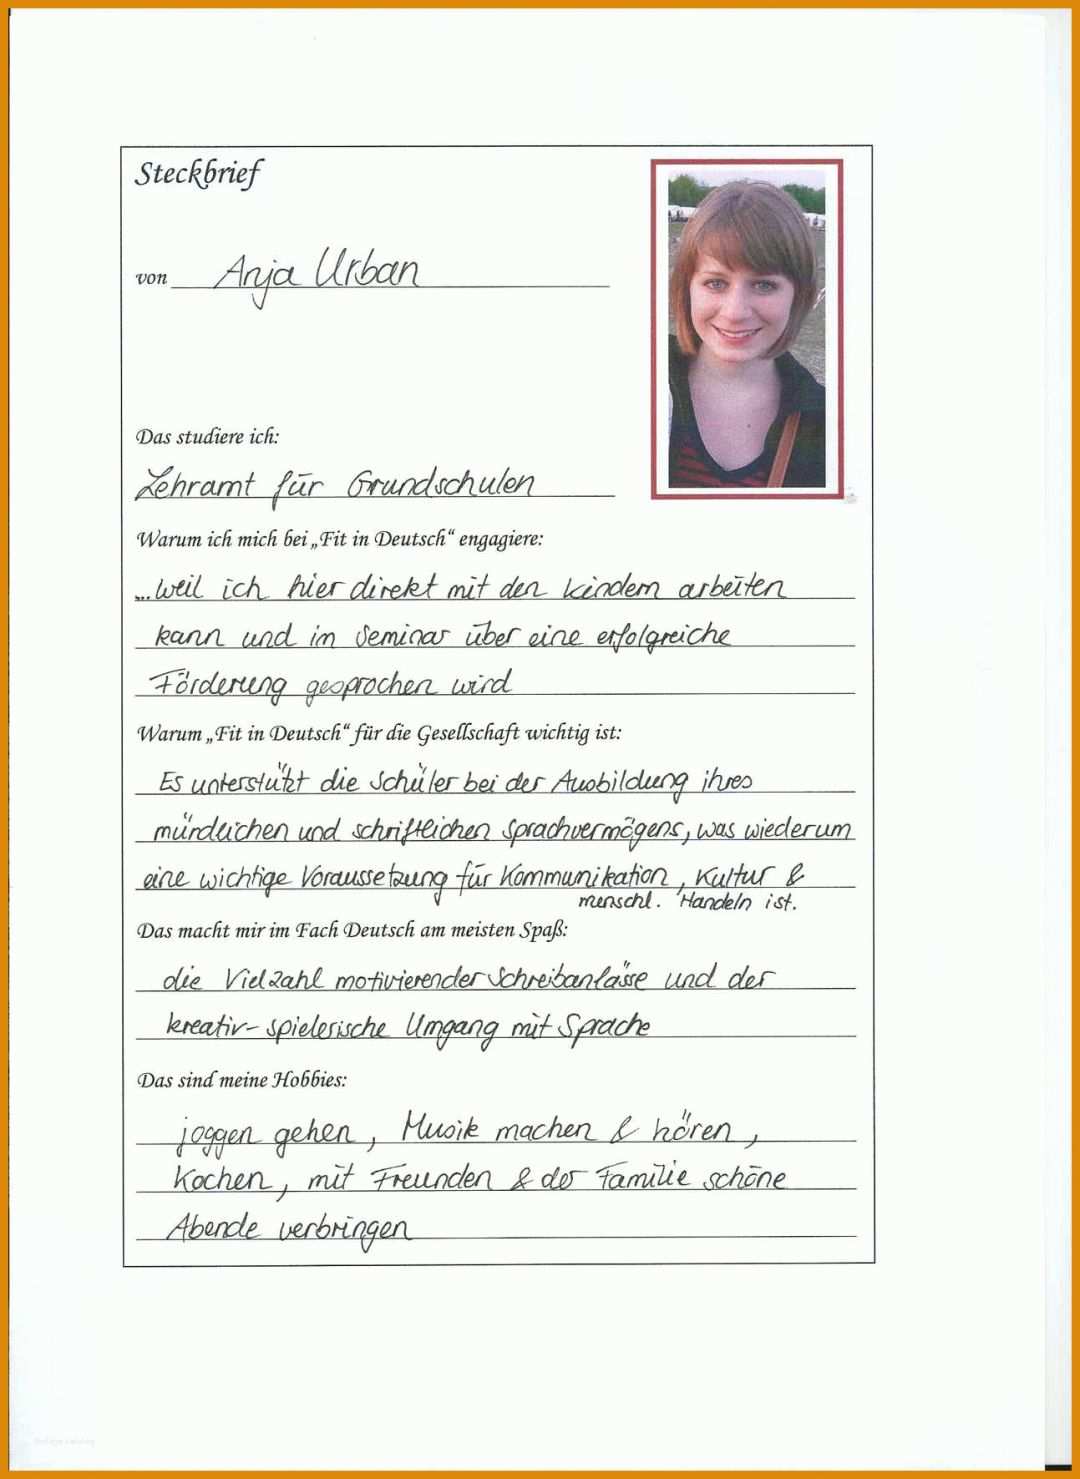 Steckbrief
von Anja Urban
Das studiere ich:
Lehramt für Grundschulen
Warum ich mich bei „Fit in Deutsch“ engagiere:
...weil ich hier direkt mit den Kindern arbeiten
kann und im Seminar über eine erfolgreiche
Förderung gesprochen wird
Warum „Fit in Deutsch“ für die Gesellschaft wichtig ist:
Es unterstützt die Schüler bei der Ausbildung ihres
mündlichen und schriftlichen Sprachvermögens, was wiederum
eine wichtige Voraussetzung für Kommunikation, Kultur &
menschl. Handeln ist.
Das macht mir im Fach Deutsch am meisten Spaß:
die Vielzahl motivierender Schreibanlässe und der
kreativ-spielerische Umgang mit Sprache
Das sind meine Hobbies:
joggen gehen, Musik machen & hören,
Kochen, mit Freunden & der Familie schöne
Abende verbringen